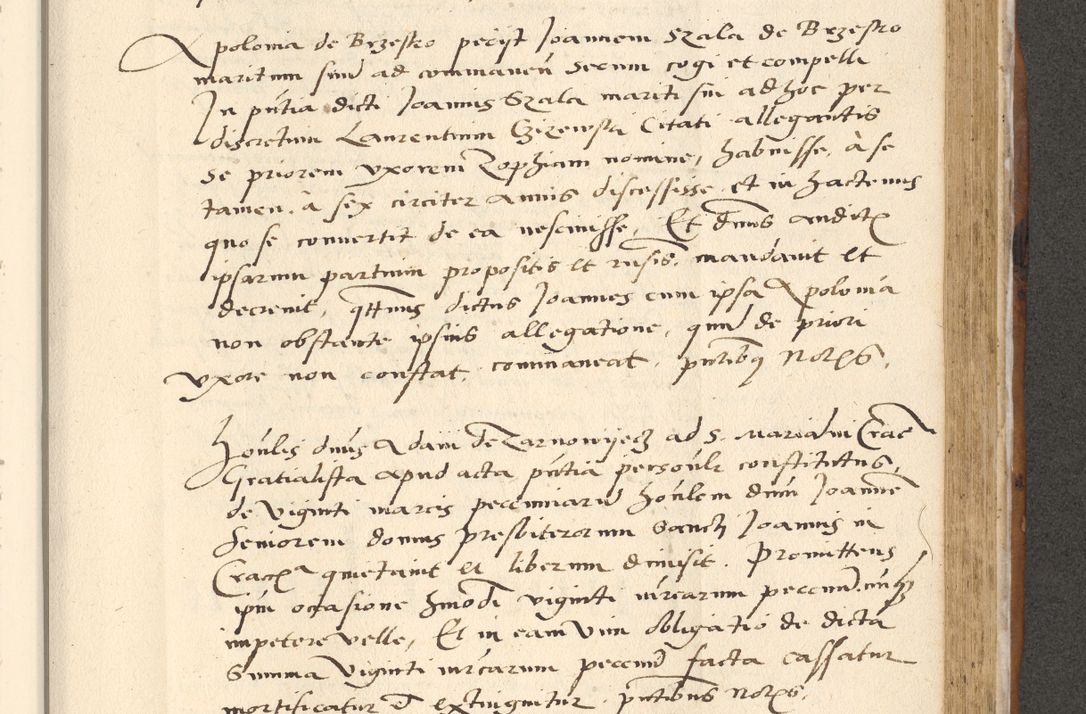 Apolonia de Brzesko petijt Joannem Szala de Brzesko
maritum suum ad commanen secum cogi et compelli
In pntia dicti Joannis Szala mariti sui ad hoc per
discretum Laurentium Citati allegantis
se priorem uxorem Zophiam nomine, habuisse, à se
tamen à sex circiter annis discessisse et in hactenus
quo se convertit de ea nescivisse, Et dnus auditis
ipsarum partium propositis et mandavit et
decrevit, qttnus dictus Joannes cum ipsa Apolonia
non obstante ipsius allegatione, quod de priori
uxore non constat, commaneat, pntibus Notrys.
Honlis dnus Adam de Tarnowijecz ad S. Mariam in Crac
Gratialista apud acta pntia personlr constitutus,
de viginti marcis pecuniarum honlem dnum Joannem
Seniorem domus presbiterorum Sancti Joannis in
Cracca quietavit et liberum dimisit. Promittens
ipm occasione hmodi viginti mrcarum pecun
impetere velle, Et in eam vim obligatio de dicta
Summa viginti mrcarum pecun facta cassatur
mortificatur et extinguitur, pntibus Notrys.